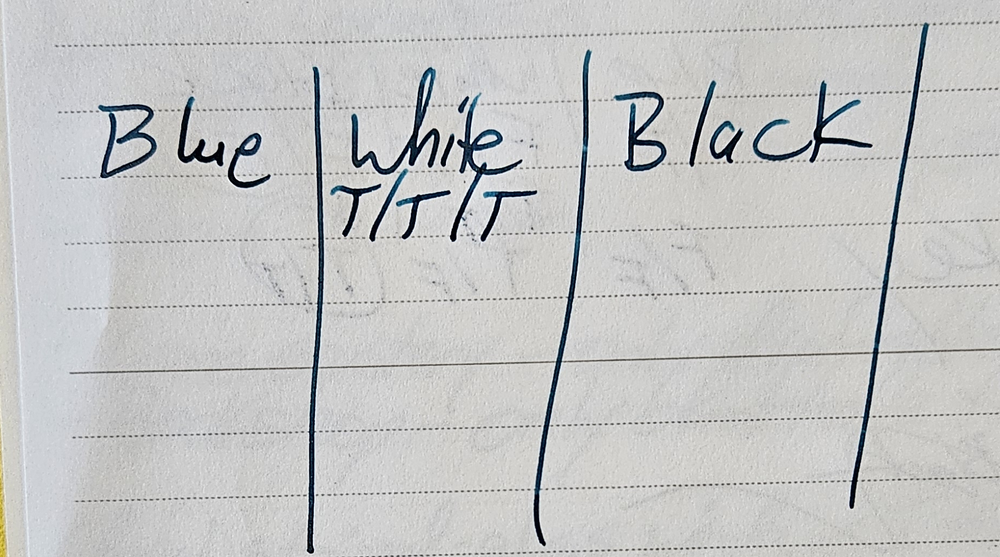 Blue | White | Black
T/T/T